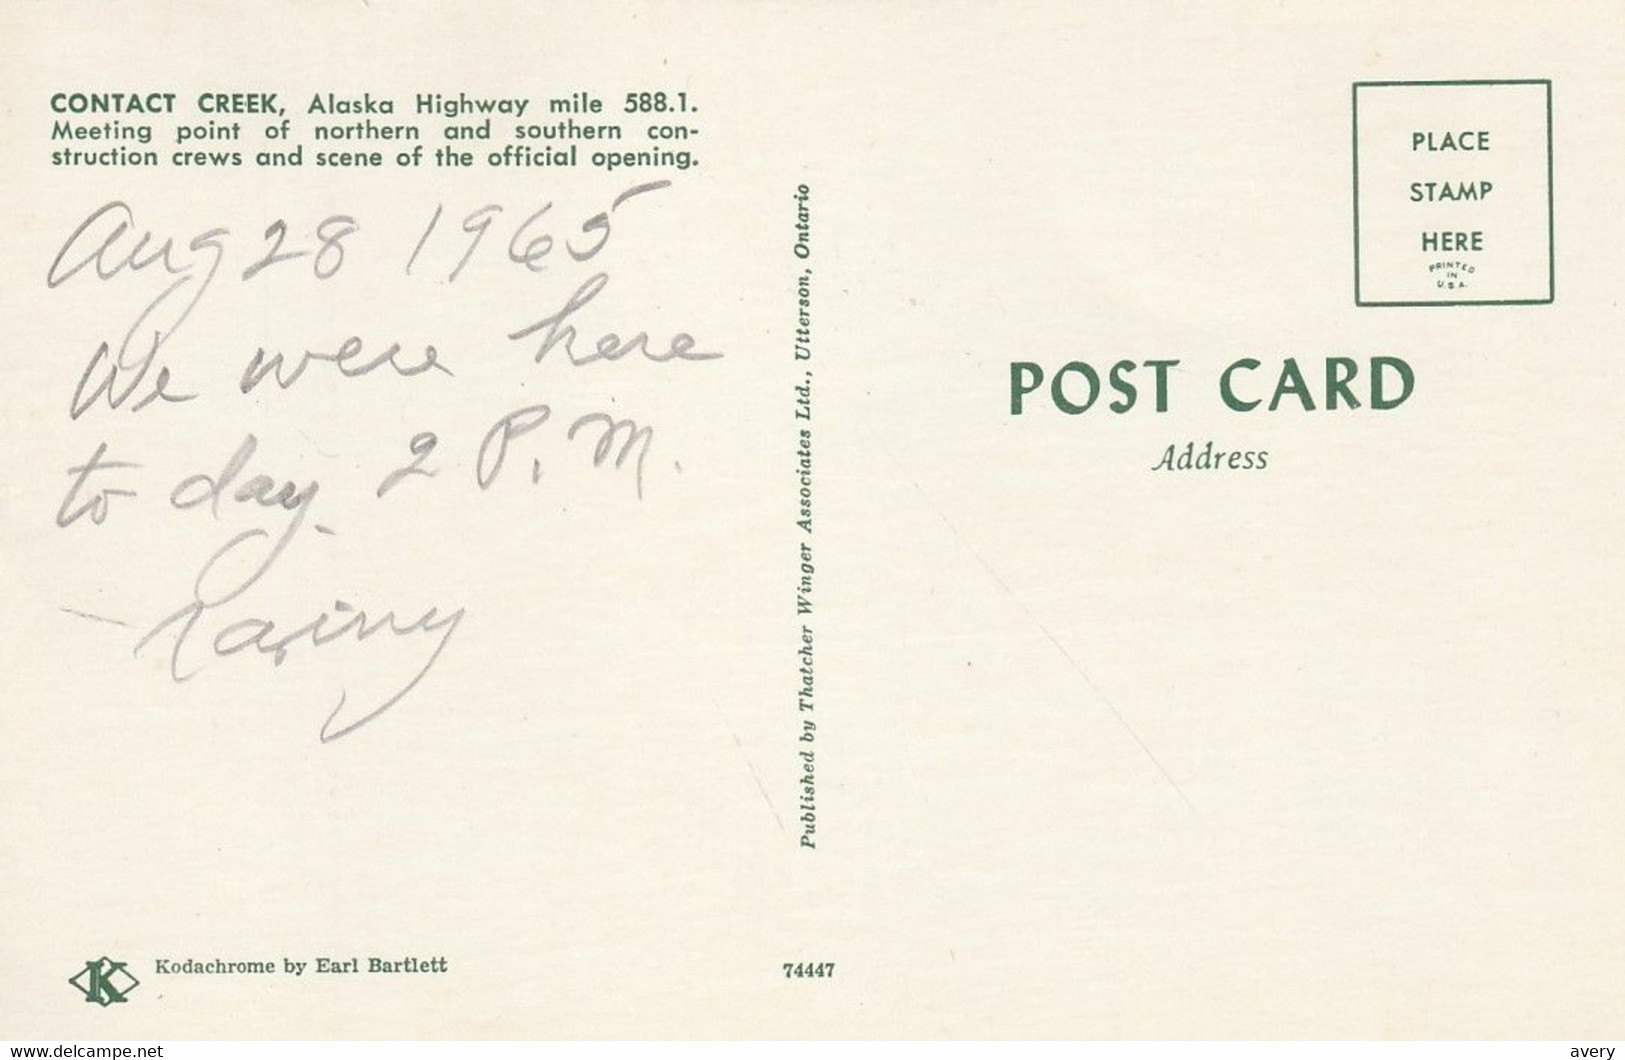 CONTACT CREEK, Alaska Highway mile 588.1.
Meeting point of northern and southern con-
struction crews and scene of the official opening.
Aug 28 1965
We were here
to day 2 P.M.
Rainy
Kodachrome by Earl Bartlett
K
Published by Thatcher Winger Associates Ltd., Utterson, Ontario
74447
PLACE
STAMP
HERE
PRINTED
IN
U.S.A.
POST CARD
Address
www.delcampe.net
avery